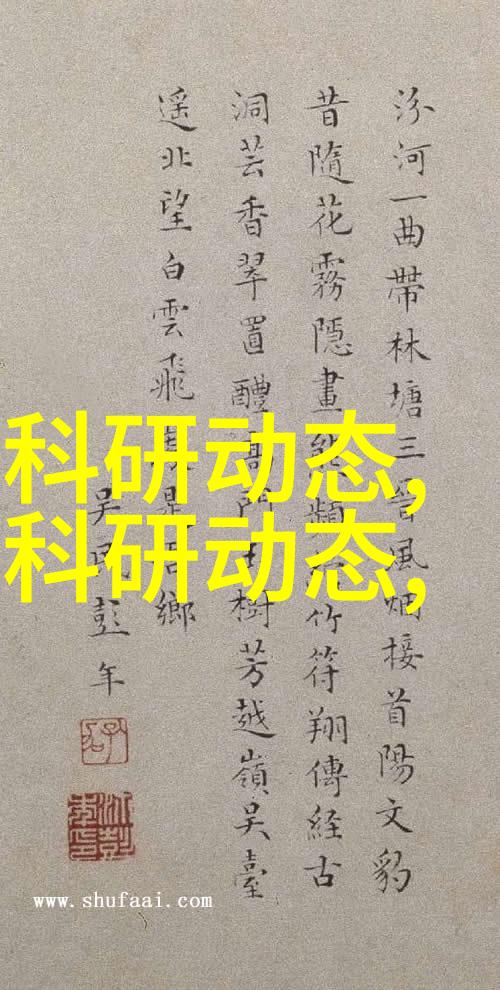 汾河一曲帶林塘三晉風烟接首陽文豹
昔隨花霧隱畫熊頻 竹符翔傳經古
洞芸香翠置醴 門 樹芳越嶺吳臺
遥北望白雲飛 是吾鄉
吴民彭年
科研动态,
科研动态,
www.shufaai.com